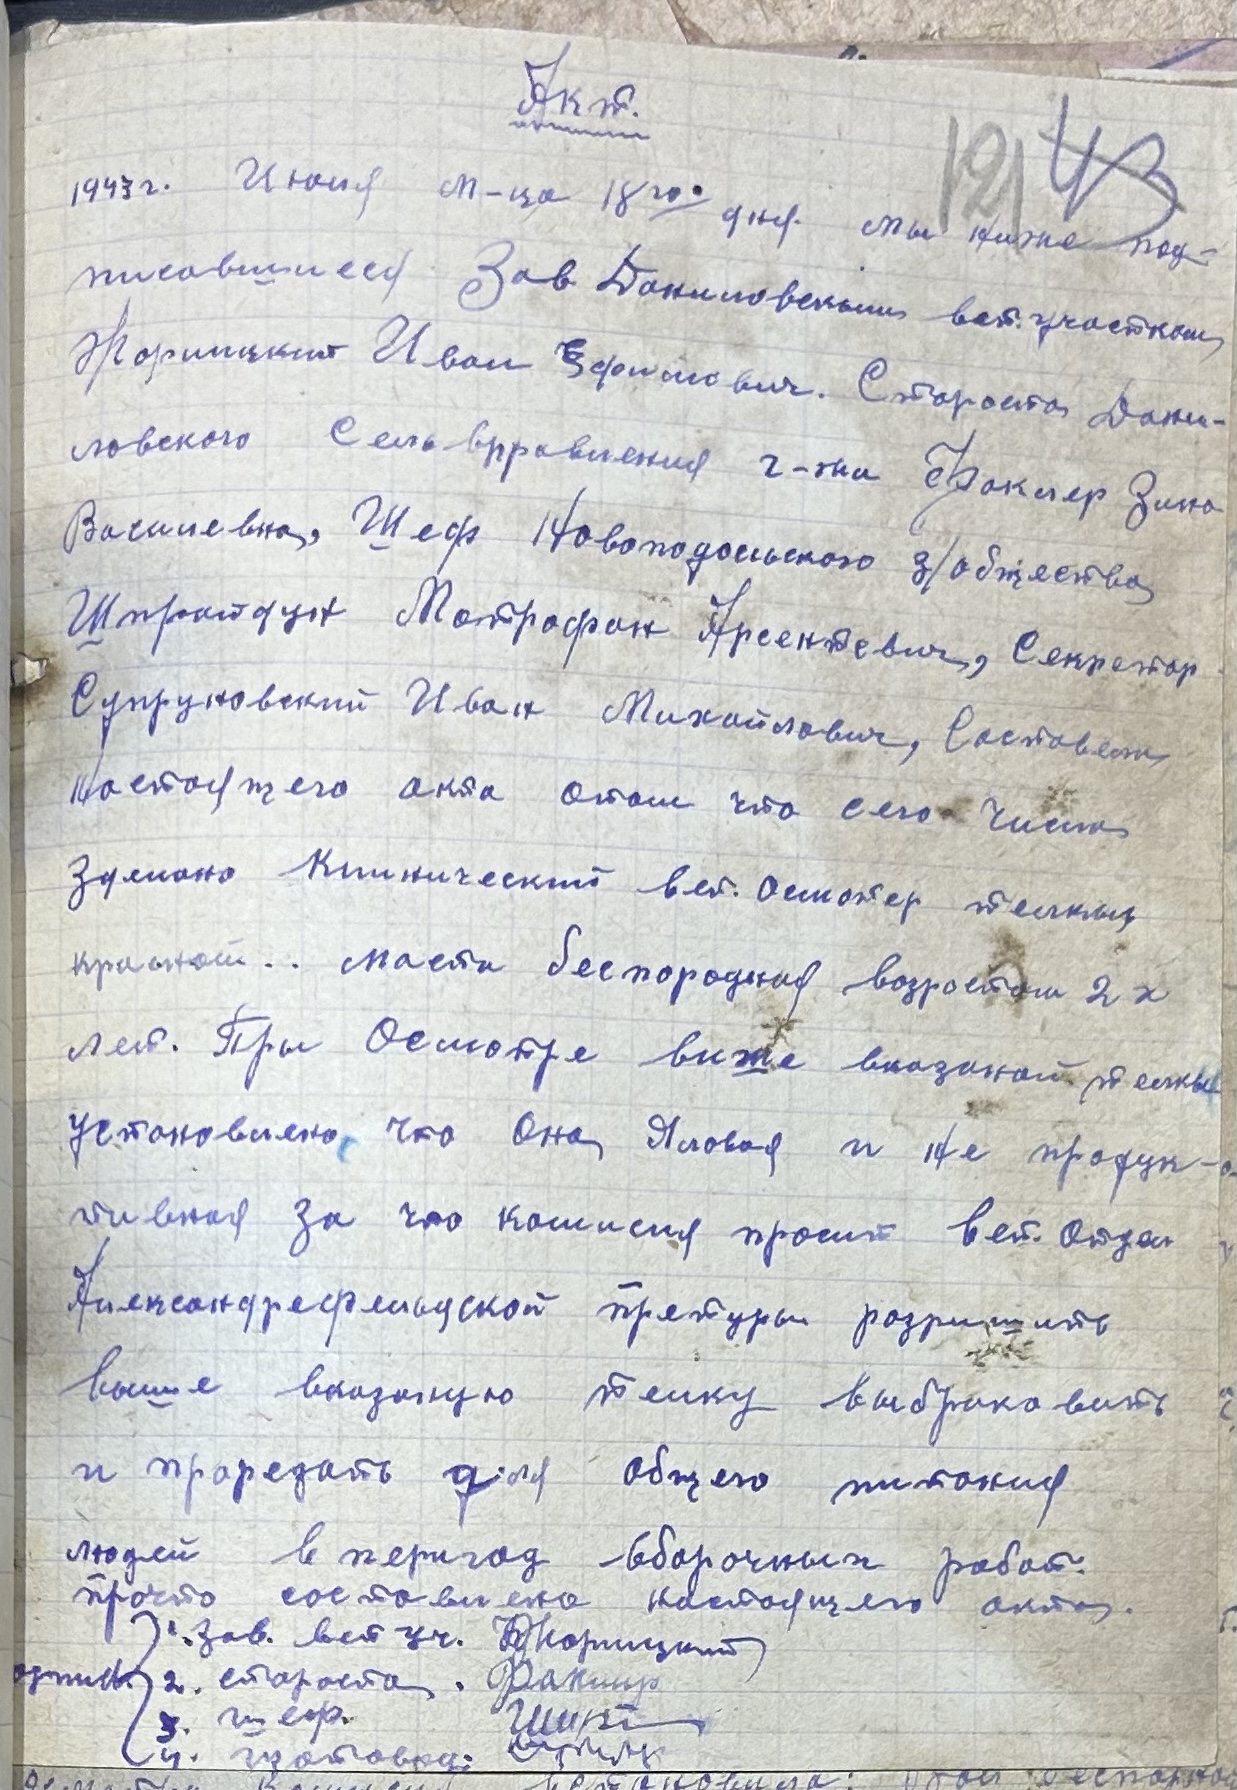 Акт.
121 43
1943 г. Июня м-ца 18го дня. мы ниже под-
писавшиеся Зав Даниловским вет. участком
Жорицкий Иван Ефимович. Староста Дани-
ловского Сельвправления г-жа Факлер Зина
Василевна, Шеф Новоподольского з/общества
Шпрайдун Матрофан Арсентевич, Секретар
Супруновский Иван Михайлович, Составели
настоящего акта отом что сего числа
зделано Клинический вет. осмотер телкы
красной .. масти беспородная возростом 2х
лет. При Осмотре више вказаной телкы
установлено что она Яловая и не продук-
тивная За что комисия просит вет. отдел
Александрефельдской претуры розришить
выше вказаную телку выбраковать
и прорезать для общего питания
людей в период вборочных работ.
прочто составлено настоящего акта.
1. Зав. вет уч. Жорицкий
2. староста. Факлер
3. шеф.
4.